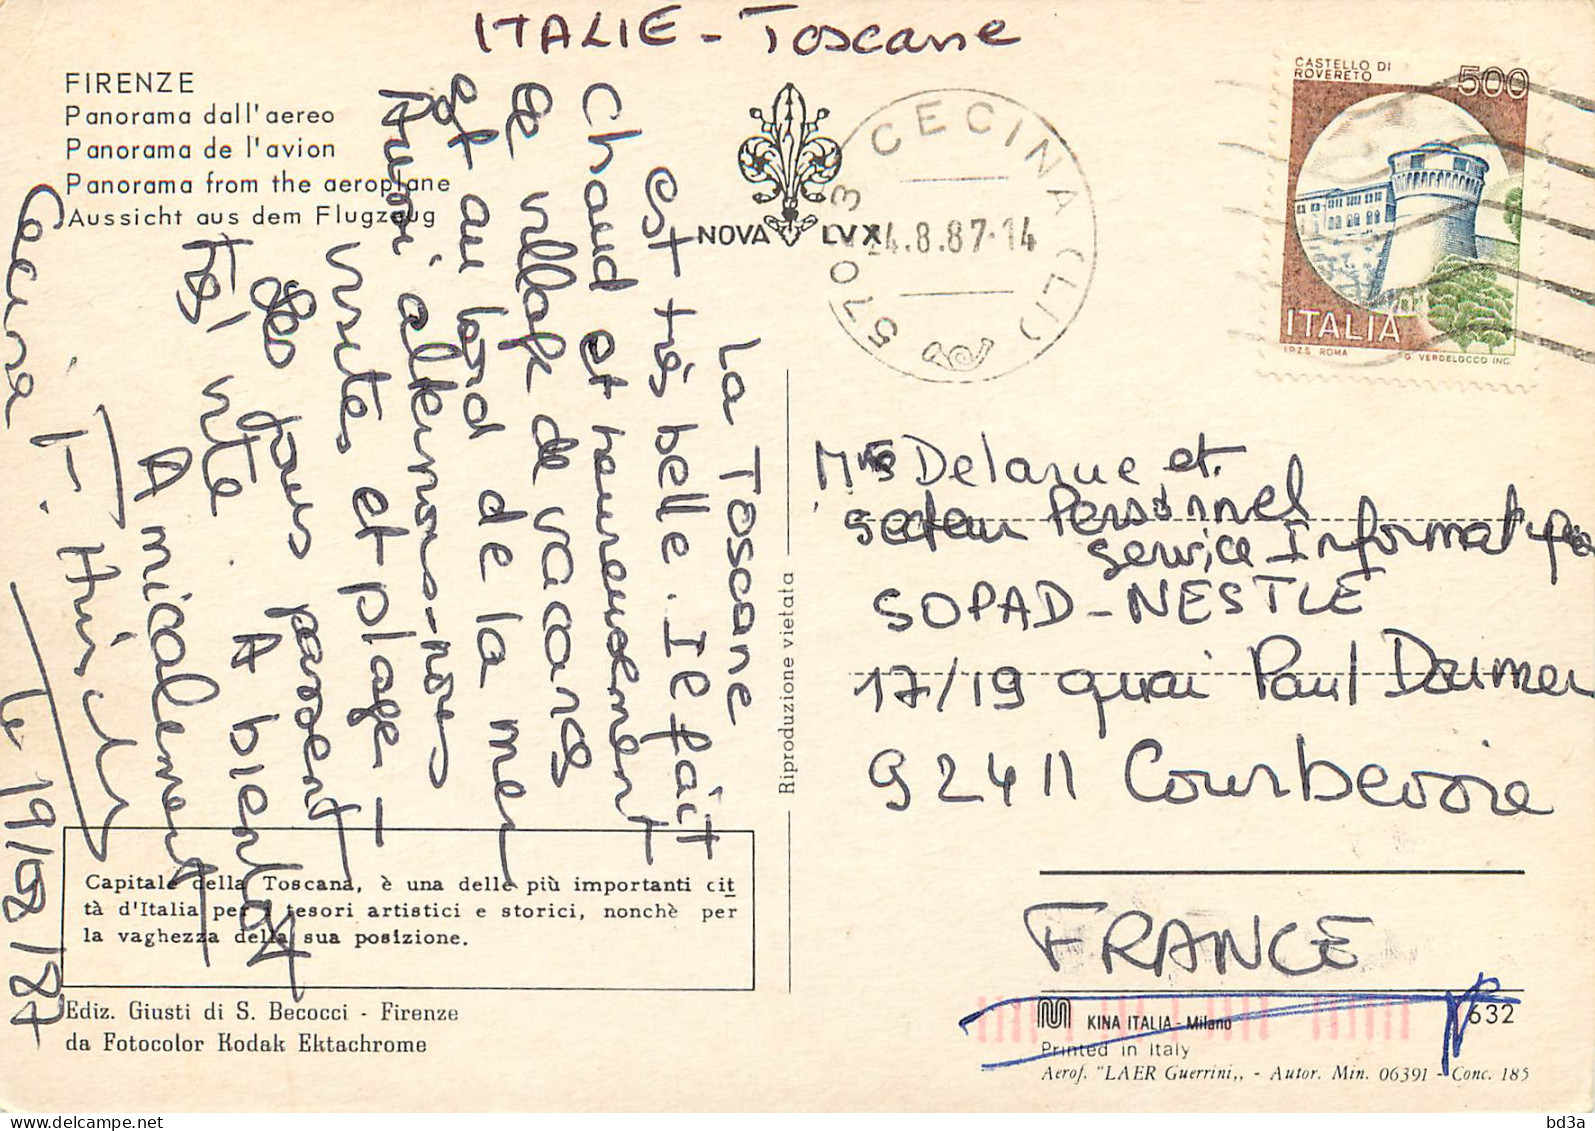 ITALIE - Toscane
FIRENZE
Panorama dall'aereo
Panorama de l'avion
Panorama from the aeroplane
Aussicht aus dem Flugzeug
NOVA LVX
57023 CECINA (LI)
24.8.87-14
CASTELLO DI
ROVERETO
500
ITALIA
I.P.Z.S. ROMA
G. VERDELOCCO INC.
La Toscane
est très belle. Il fait
Chaud et heureusement
Ce village de vacans
est au bord de la mer
Aussi alternons-nous
visites et plage -
Les jours passent
très vite A bientôt
Amicalement
Cecina le 19/08/87
Mrs Delarue et
secteur Personnel
service Informatique
SOPAD-NESTLE
17/19 quai Paul Doumer
92411 Courbevoie
FRANCE
Riproduzione vietata
Capitale della Toscana, è una delle più importanti cit
tà d'Italia per i tesori artistici e storici, nonchè per
la vaghezza della sua posizione.
Ediz. Giusti di S. Becocci - Firenze
da Fotocolor Kodak Ektachrome
KINA ITALIA - Milano
632
Printed in Italy
Aerof. "LAER Guerrini,, - Autor. Min. 06391 - Conc. 185
bd3a